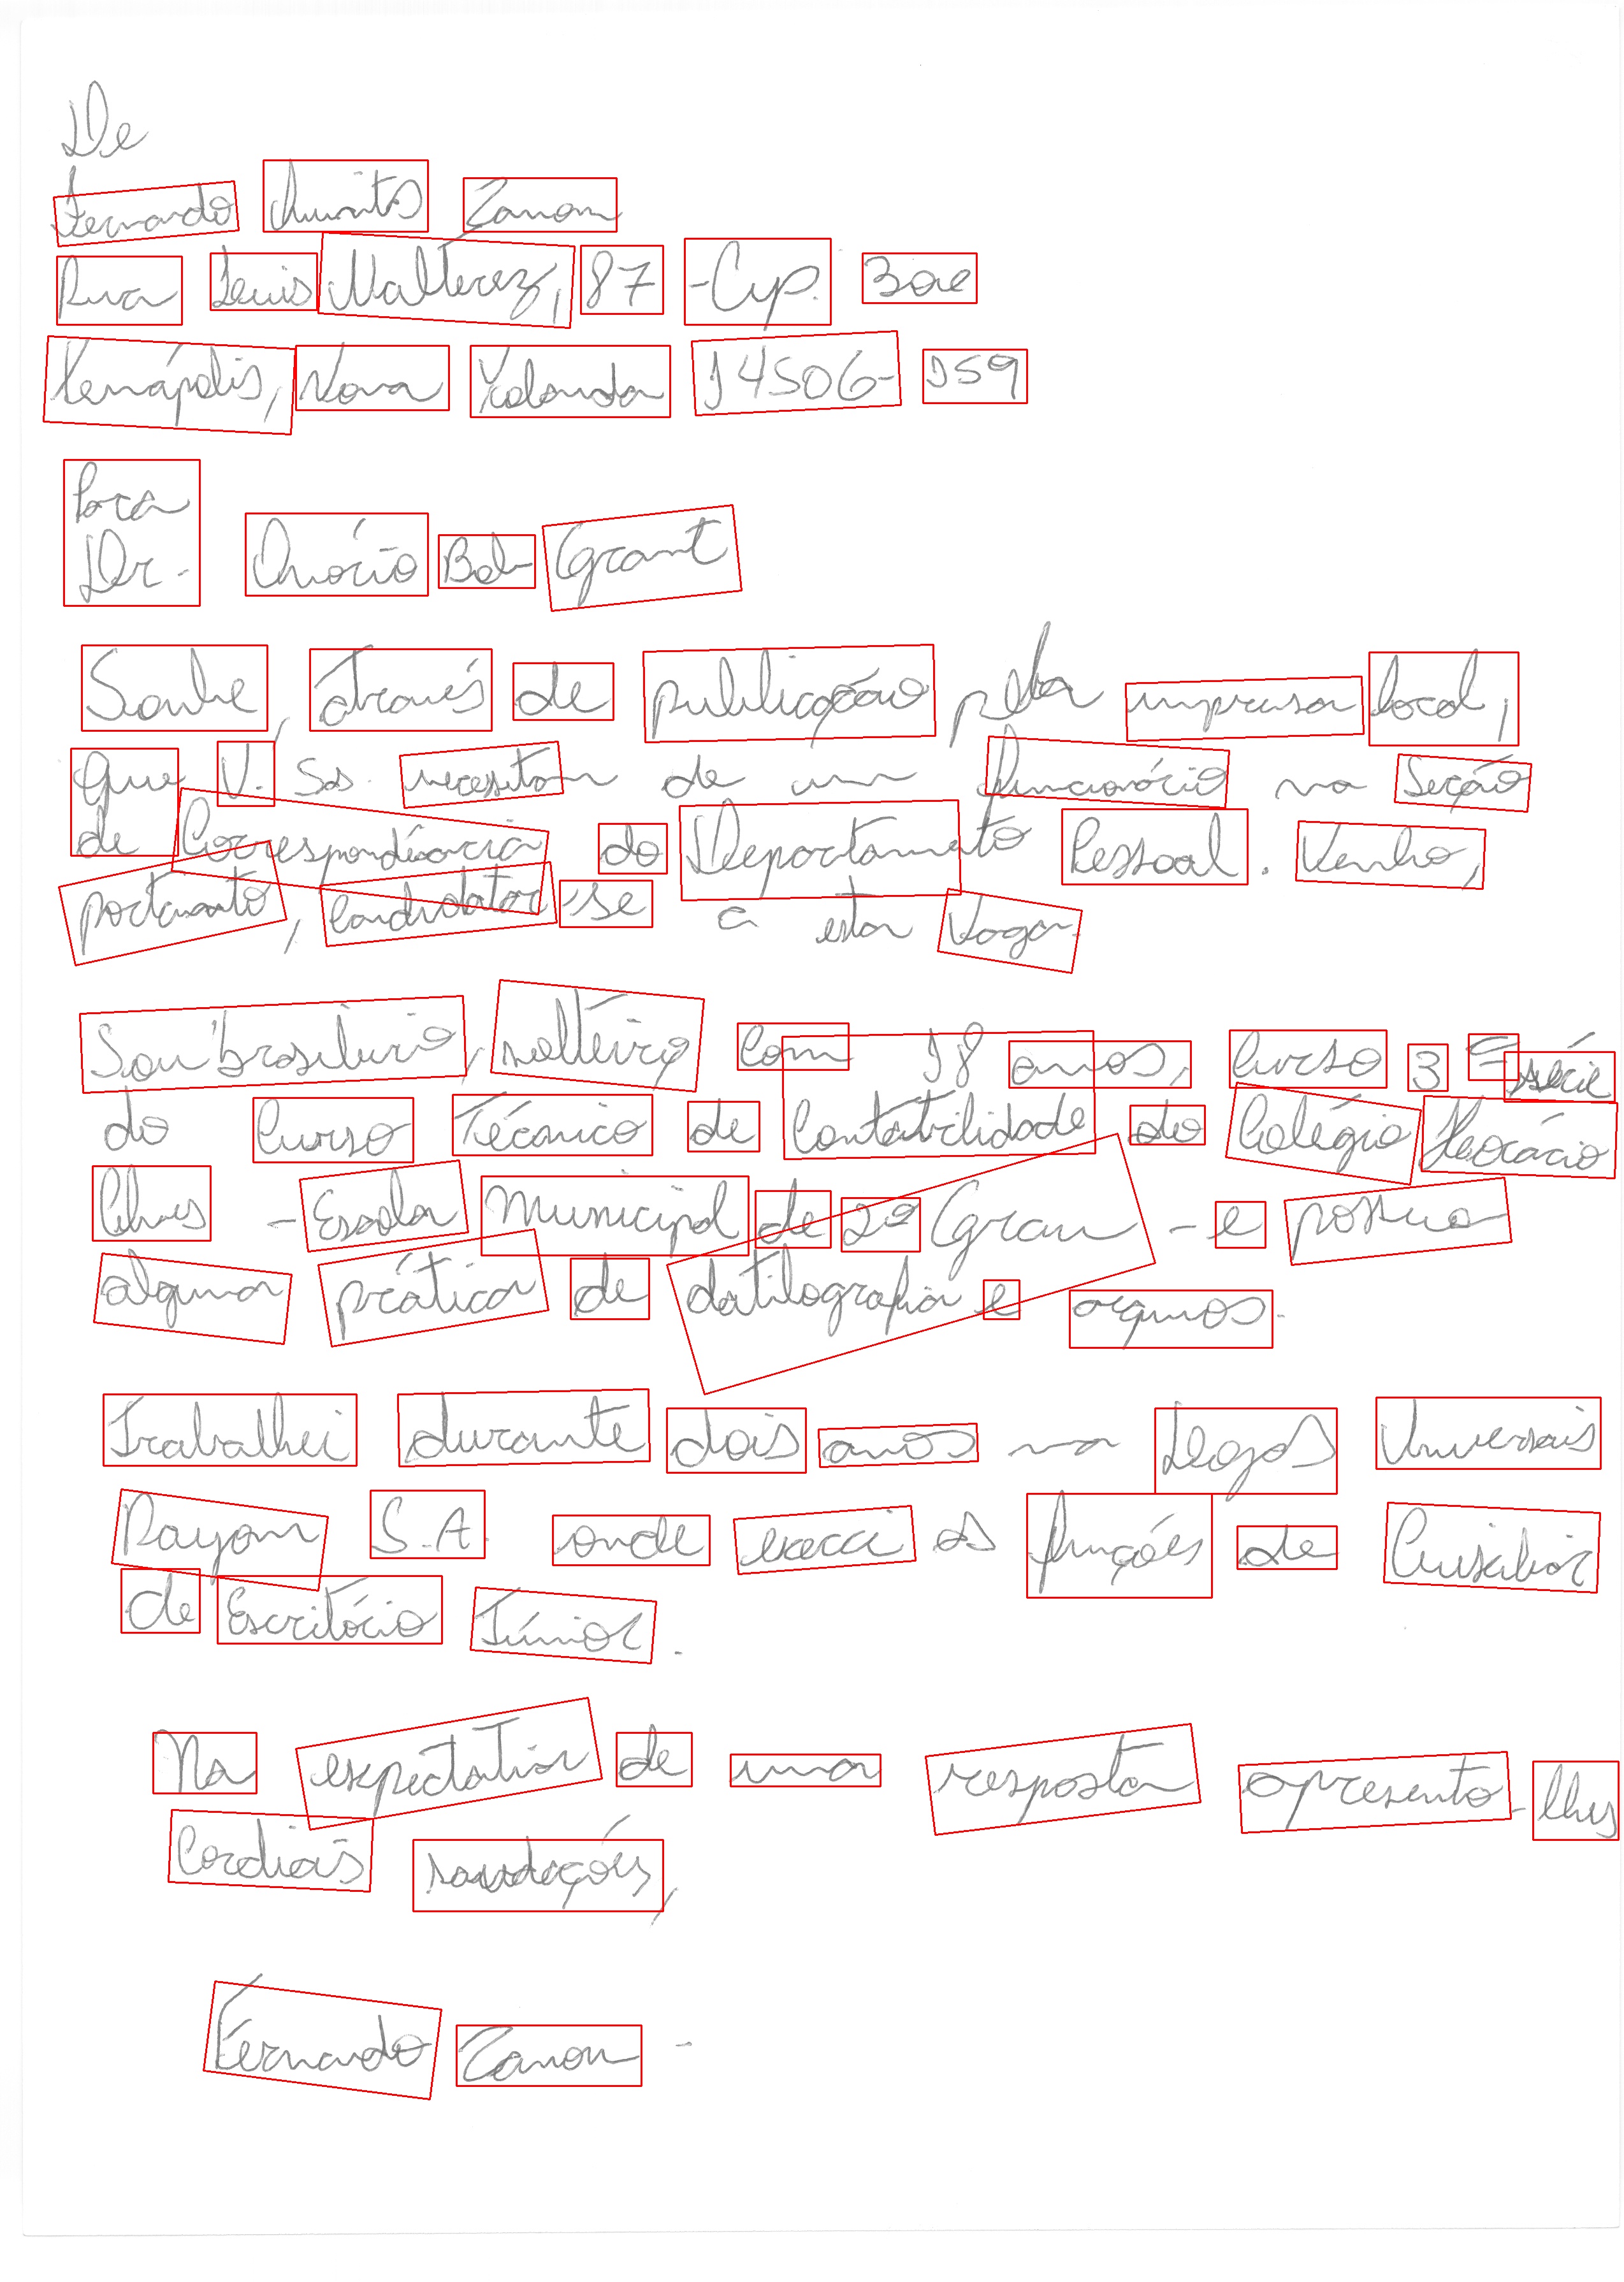 De
Fernando Zanon
Rua Luis Walterez, 87 - Cyp. 302
Xenápolis, Nova Yolanda 14506-159
Para
Dr. Onório Bob Grant
Soube, através de publicação pela imprensa local,
Que V. Sas. necessitam de um funcionário na Seção
de Correspondência do Departamento Pessoal. Venho,
portanto, candidatar-se a esta Vaga.
Sou brasileiro, solteiro com 18 anos, Curso 3ª série
do Curso Técnico de Contabilidade do Colégio Horácio
Chaves - Escola Municipal de 2º Grau - e possuo
alguma prática de datilografia e arquivos.
Trabalhei durante dois anos na Lojas Universais
Rayon S.A. onde exerci as funções de Auxiliar
de Escritório Júnior.
Na expectativa de uma resposta apresento-lhes
Cordiais saudações,
Fernando Zanon